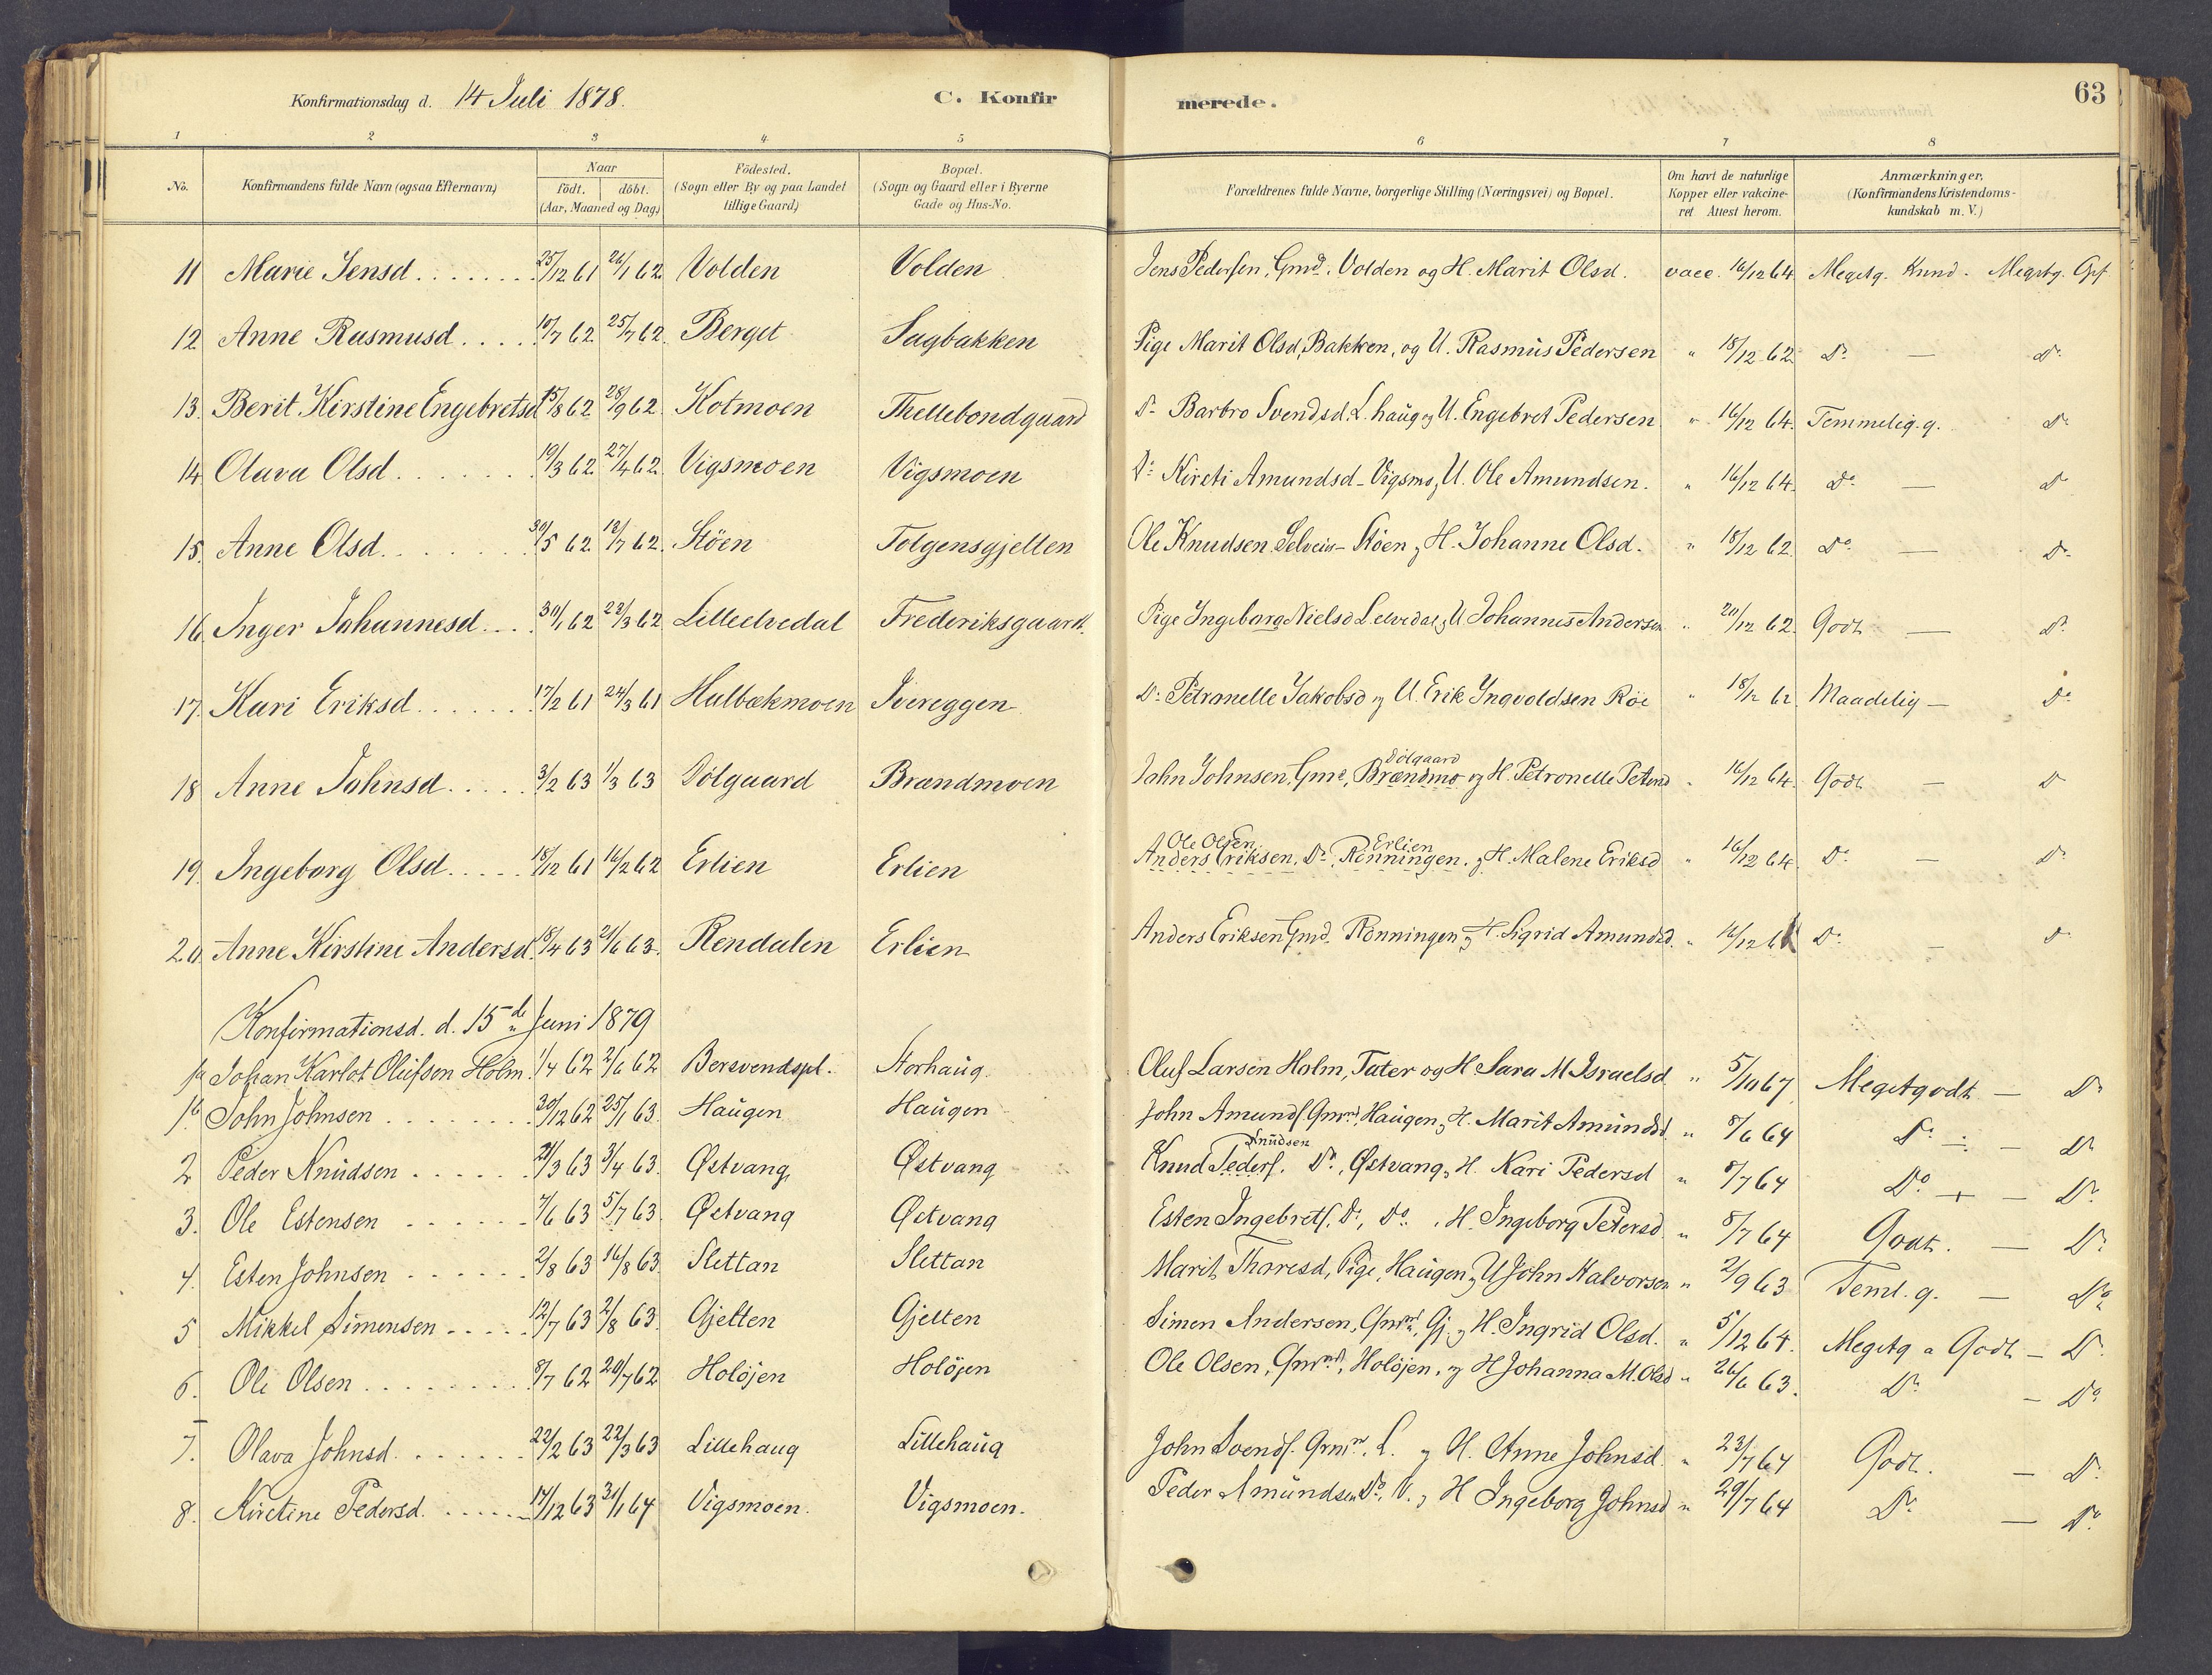 Konfirmationsdag d. 14 Juli 1878. C. Konfirmerede. 63
1 2 3 4 5 6 7 8
No. Konfirmandens fulde Navn (ogsaa Efternavn) Naar födt. döbt. (Aar, Maaned og Dag.) Födested. (Sogn eller By og paa Landet tillige Gaard) Bopæl. (Sogn og Gaard eller i Byerne Gade og Hus-No. Forældrenes fulde Navne, borgerlige Stilling (Næringsvei) og Bopæl. Om havt de naturlige Kopper eller vakcineret Attest herom. Anmærkninger. (Konfirmandens Kristendomskundskab m. V.)
11 Marie Jensd. 25/12 61 26/1 62 Volden Volden Jens Pedersen, Gmd. Volden og H. Marit Olsd. vacc. 16/12 64 Megetg. Kund. Megetg. Opf
12 Anne Rasmusd. 10/7 62 25/7 62. Berget Sagbakken Pige Marit Olsd, Bakken, og U. Rasmus Pedersen " 18/12 62 Do — Do
13. Berit Kirstine Engebretsd 15/8 62 28/9 62. Kotmoen Thellebondgaard Do Barbro Svendsd. L.haug og U. Engebret Pedersen " 16/12 64. Temmelig g. Do
14. Olava Olsd. 19/3 62 27/4 62. Vigsmoen Vigsmoen Do Kirsti Amundsd-Vigsmo, U. Ole Amundsen. " 16/12 64. Do — Do
15. Anne Olsd. 30/5 62 12/7 62. Stöen Tolgensgjelten Ole Knudsen Selveier-Stöen, H. Johanne Olsd. " 18/12 62 Do — Do
16. Inger Johannesd. 30/1 62 23/3 62 Lilleelvedal Frederiksgaard. Pige Ingeborg Nielsd L.elvedal, U Johannes Andersen " 20/12 62. Godt — Do
17. Kari Eriksd. 17/2 61 24/3 61 Hulbækmoen Ivereggen Do Petronelle Jakobsd og U. Erik Ingvoldsen Röe " 18/12 62. Maadelig — Do
18 Anne Johnsd. 3/2 63 1/3 63 Dölgaard Brændmoen John Johnsen, Gmd, Brændmo Dölgaard og H. Petronelle Petersd " 16/12 64. Godt — Do
19. Ingeborg Olsd. 18/12 61 16/2 62 Erlien Erlien Anders Eriksen Ole Olsen, Do, Rönningen Erlien. og H. Malene Eriksd " 16/12 64. Do — Do
20. Anne Kirstine Andersd. 18/4 63 21/6 63. Rendalen Erlien Anders Eriksen Gmd. Rönningen, H. Sigrid Amundsd. " 16/12 Do — Do
Konfirmationsd. d. 15de Juni 1879
1a Johan Karlot Olufsen Holm. 1/4 62 2/6 62 Bersvendspl. Storhaug. Oluf Larsen Holm, Tater og H. Sara M Israelsd " 5/10 67 Megetgodt — Do
1b. John Johnsen 30/12 62 25/1 63. Haugen Haugen John Amunds. Gmd, Haugen, H. Marit Amundsd. " 8/6 64 Do ÷ — Do
2 Peder Knudsen 21/3 63 3/4 63. Østvang Østvang Knud Peders. Knudsen Do, Østvang, H. Kari Pedersd " 8/7 64 Do + — Do
3. Ole Estensen 7/6 63 5/7 63. Østvang Østvang Esten Ingebrets. Do, Do, H. Ingeborg Petersd " 8/7 64 Godt. — Do
4. Esten Johnsen 2/8 63 16/8 63. Slettan Slettan Marit Tharesd, Pige, Haugen, U John Halvorsen " 2/9 63 Teml. g. — Do
5 Mikkel Simensen 12/7 63 2/8 63. Gjelten Gjelten Simen Andersen, Gmd, Gj. og H. Ingrid Olsd. " 5/12 64. Megetg a Godt — Do
6. Ole Olsen 8/7 62 20/7 62 Holöjen Holöjen Ole Olsen, Gmd, Holöjen, og H Johanna M. Olsd " 26/6 63. Do — Do
7. Olava Johnsd. 22/2 63 22/3 63 Lillehaug Lillehaug John Svends. Gmd, L. og H. Anne Johnsd. " 23/7 64 Godt. — Do
8. Kirstine Pedersd. 17/12 63 31/1 64 Vigsmoen. Vigsmoen. Peder Amundsen Do, V. og H Ingeborg Johnsd " 29/7 64 Do — Do